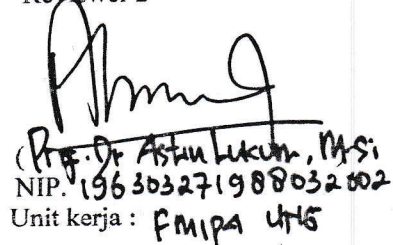 Reviewer 2
(Prof. Dr Astin Lukum, M.Si
NIP. 196303271988032002
Unit kerja : FMIPA UNG